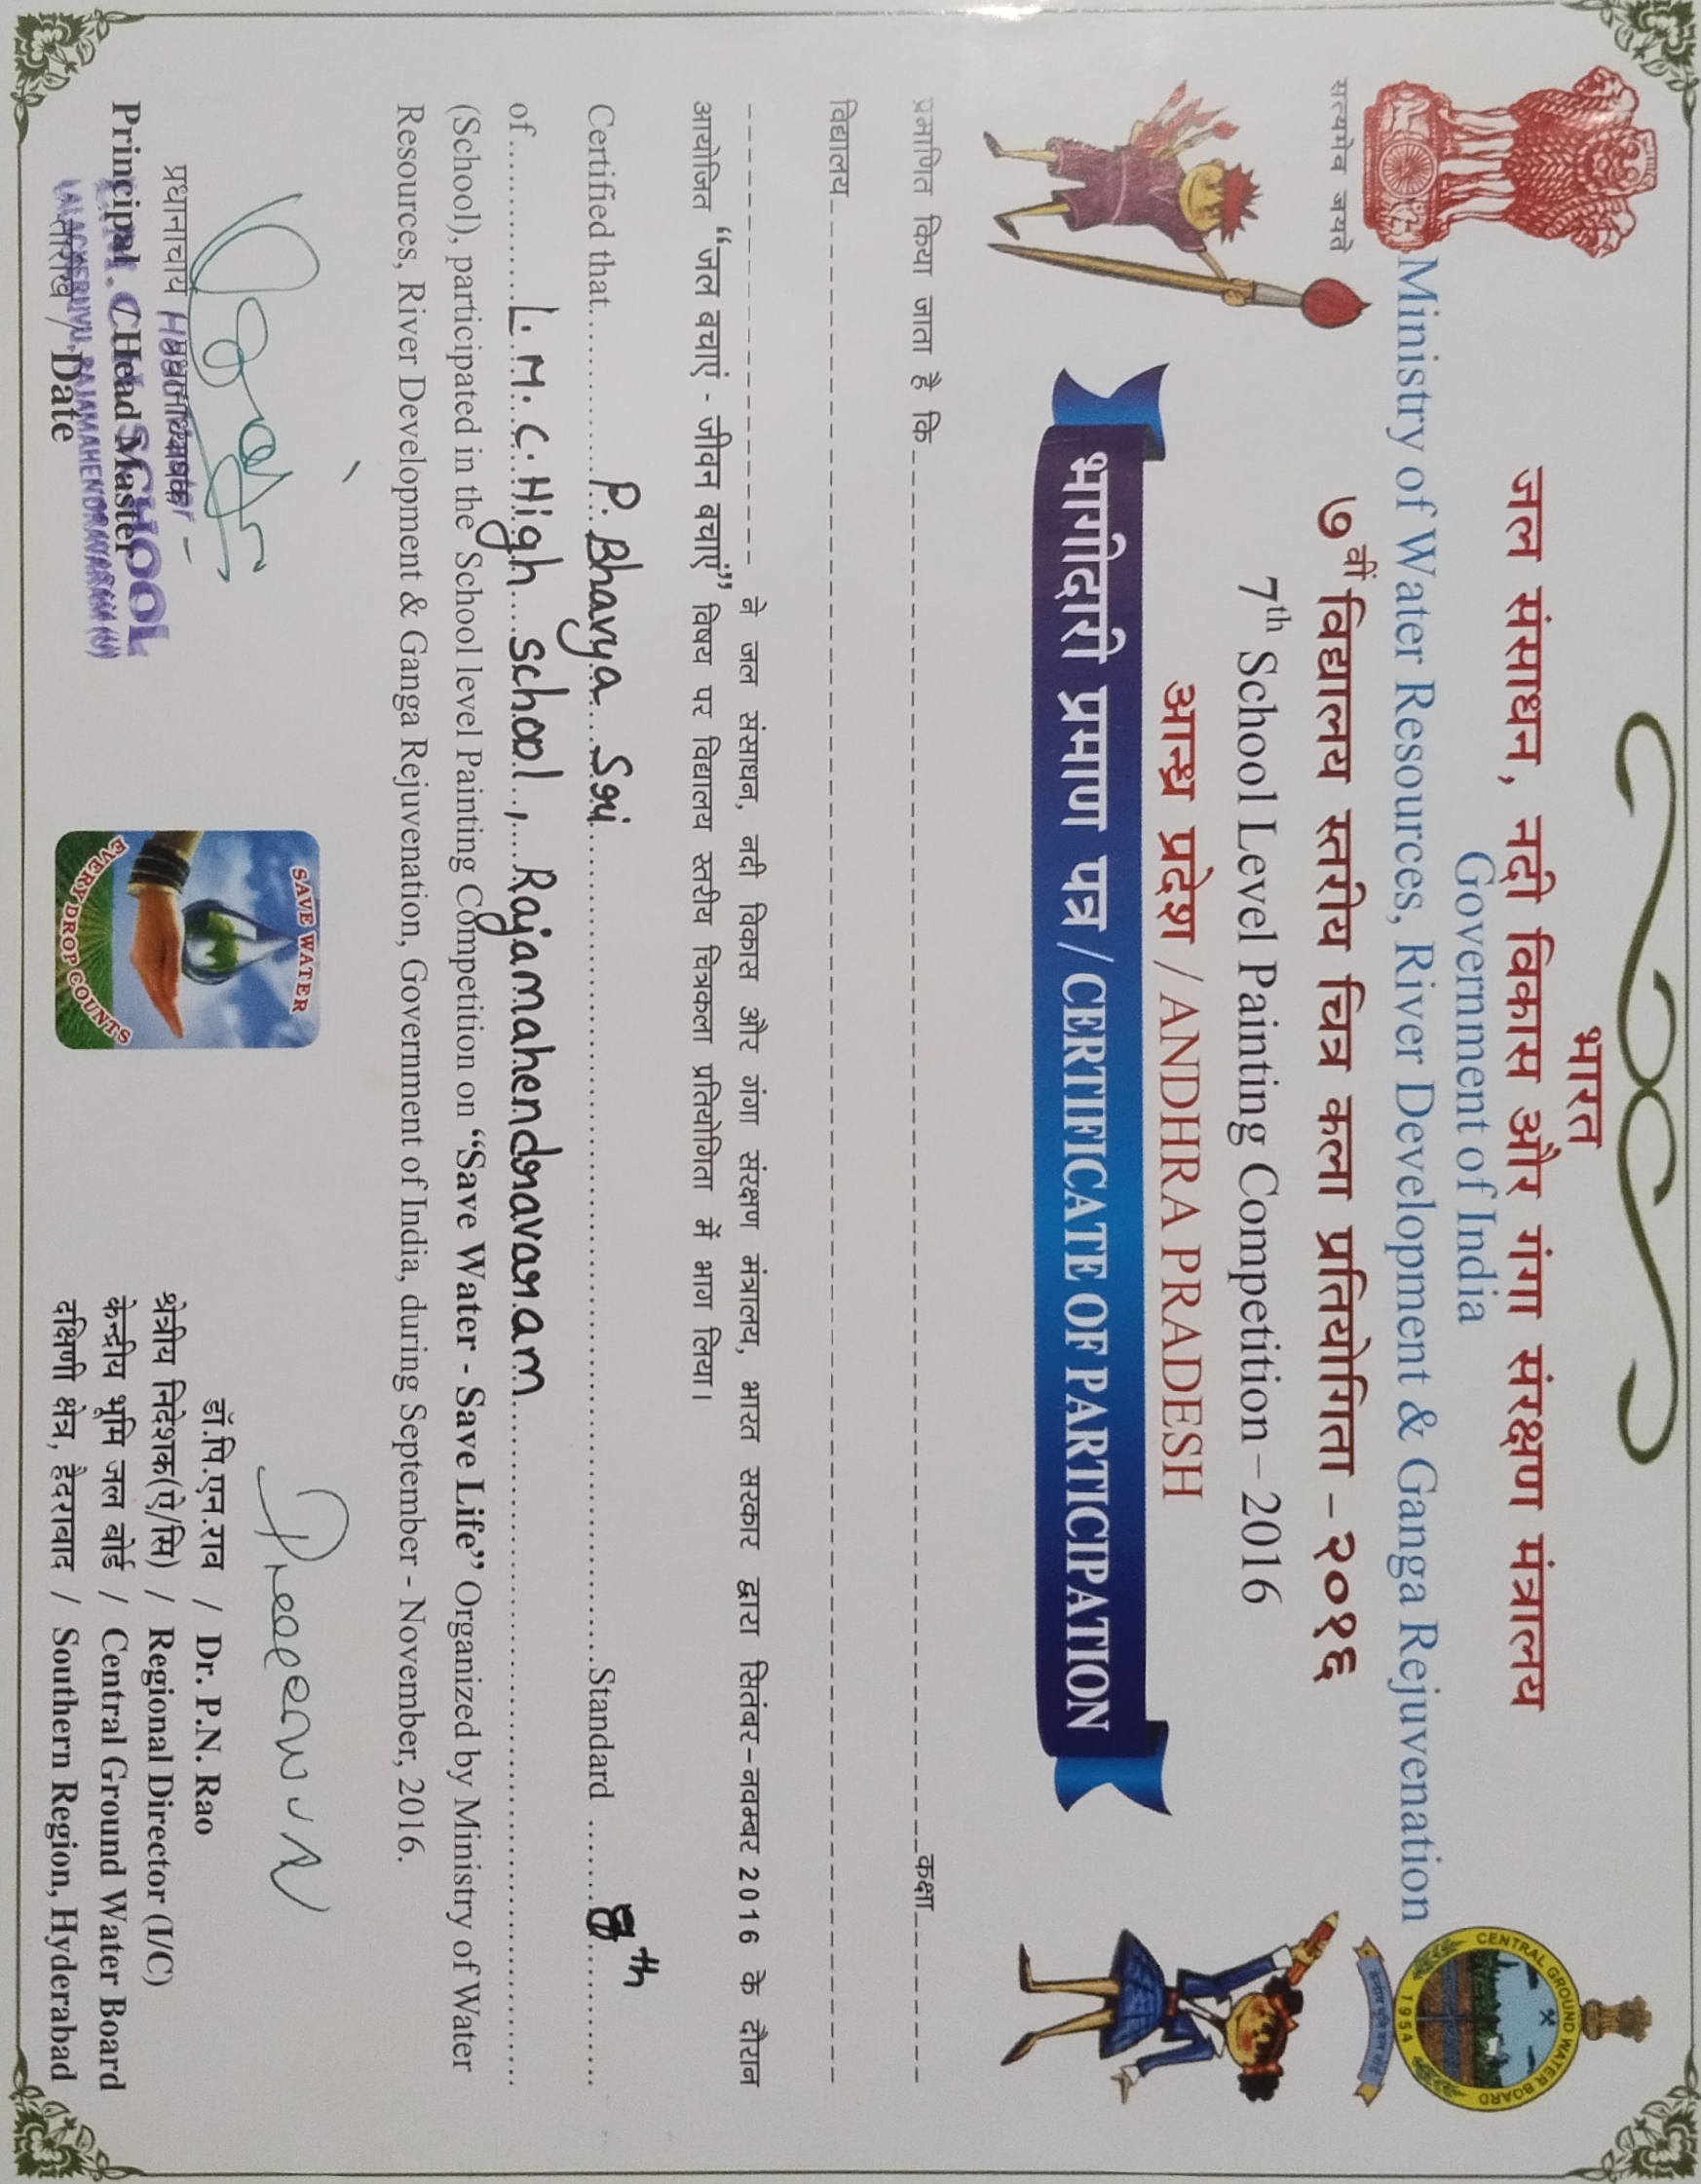 भारत
जल संसाधन, नदी विकास और गंगा संरक्षण मंत्रालय
Government of India
Ministry of Water Resources, River Development & Ganga Rejuvenation
सत्यमेव जयते
CENTRAL GROUND WATER BOARD
1954
केन्द्रीय भूमि जल बोर्ड
७वीं विद्यालय स्तरीय चित्र कला प्रतियोगिता – २०१६
7th School Level Painting Competition – 2016
आन्ध्र प्रदेश / ANDHRA PRADESH
भागीदारी प्रमाण पत्र / CERTIFICATE OF PARTICIPATION
प्रमाणित किया जाता है कि कक्षा
विद्यालय
ने जल संसाधन, नदी विकास और गंगा संरक्षण मंत्रालय, भारत सरकार द्वारा सितंबर–नवम्बर 2016 के दौरान
आयोजित “जल बचाएं - जीवन बचाएं” विषय पर विद्यालय स्तरीय चित्रकला प्रतियोगिता में भाग लिया।
Certified that P. Bhavya Sri Standard 8th
of L.M.C. High school, Rajamahendravaram
(School), participated in the School level Painting Competition on “Save Water - Save Life” Organized by Ministry of Water
Resources, River Development & Ganga Rejuvenation, Government of India, during September - November, 2016.
SAVE WATER
EVERY DROP COUNTS
प्रधानाचार्य / प्रधानाध्यापक
Head Master
Principal / Head Master
L.M.C.H. SCHOOL
LALACHERUVU, RAJAMAHENDRAVARAM (U)
तारीख / Date
डॉ.पि.एन.राव / Dr. P.N. Rao
श्रेत्रीय निदेशक(ऐ/सि) / Regional Director (I/C)
केन्द्रीय भूमि जल बोर्ड / Central Ground Water Board
दक्षिणी क्षेत्र, हैदराबाद / Southern Region, Hyderabad